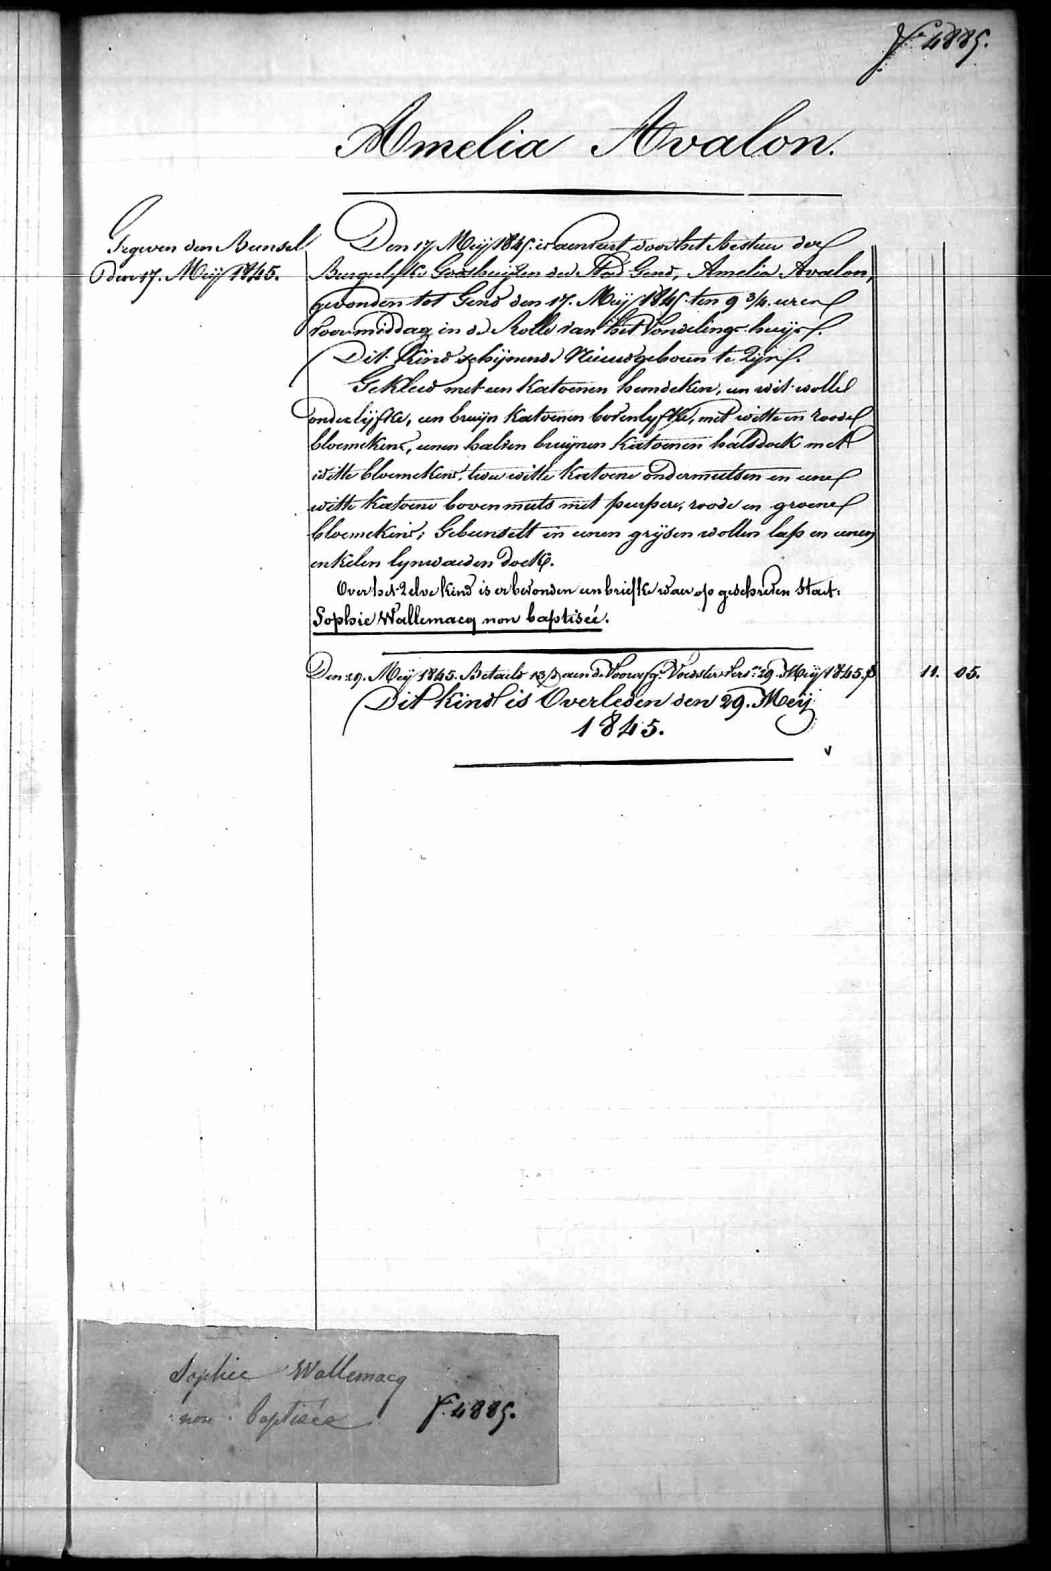 F. 4885.
Amelia Avalon.
Gegeven den Bunsel
den 17. Meij 1845.
Den 17 Meij 1845. is aenveert door het bestuer der
Burgelyke Godshuizen der Stad Gend, Amelia Avalon,
gevonden tot Gend den 17. Meij 1845. ten 9 3/4 uren
voormiddag in de Rolle van het Vondelings-huijs.
Dit kind schijnende Nieuwgeboren te zijn.
Gekleed met een katoenen hemdeken, een wit wolle
onderlijfke, een bruijn katoenen bovenlyfke, met witte en roode
bloemekens, eenen halven bruijnen katoenen halsdoek met
witte bloemekens, twee witte katoene ondermutsen en eene
witte katoene bovenmuts met peerpere, roode en groene
bloemekens; Gebunselt in eenen grijsen wollen lap en eenen
enkelen lynwaeden doek.
Over het zelve kind is er bevonden een briefke waer op geschreven staet:
Sophie Wallemacq non baptiseé.
Den 29. Meij 1845. Betaeld aen de Voedster 29. Meij 1845. 11. 05.
Dit kind is Overleden den 29. Meij
1845.
Sophie Wallemacq
non baptisée F. 4885.